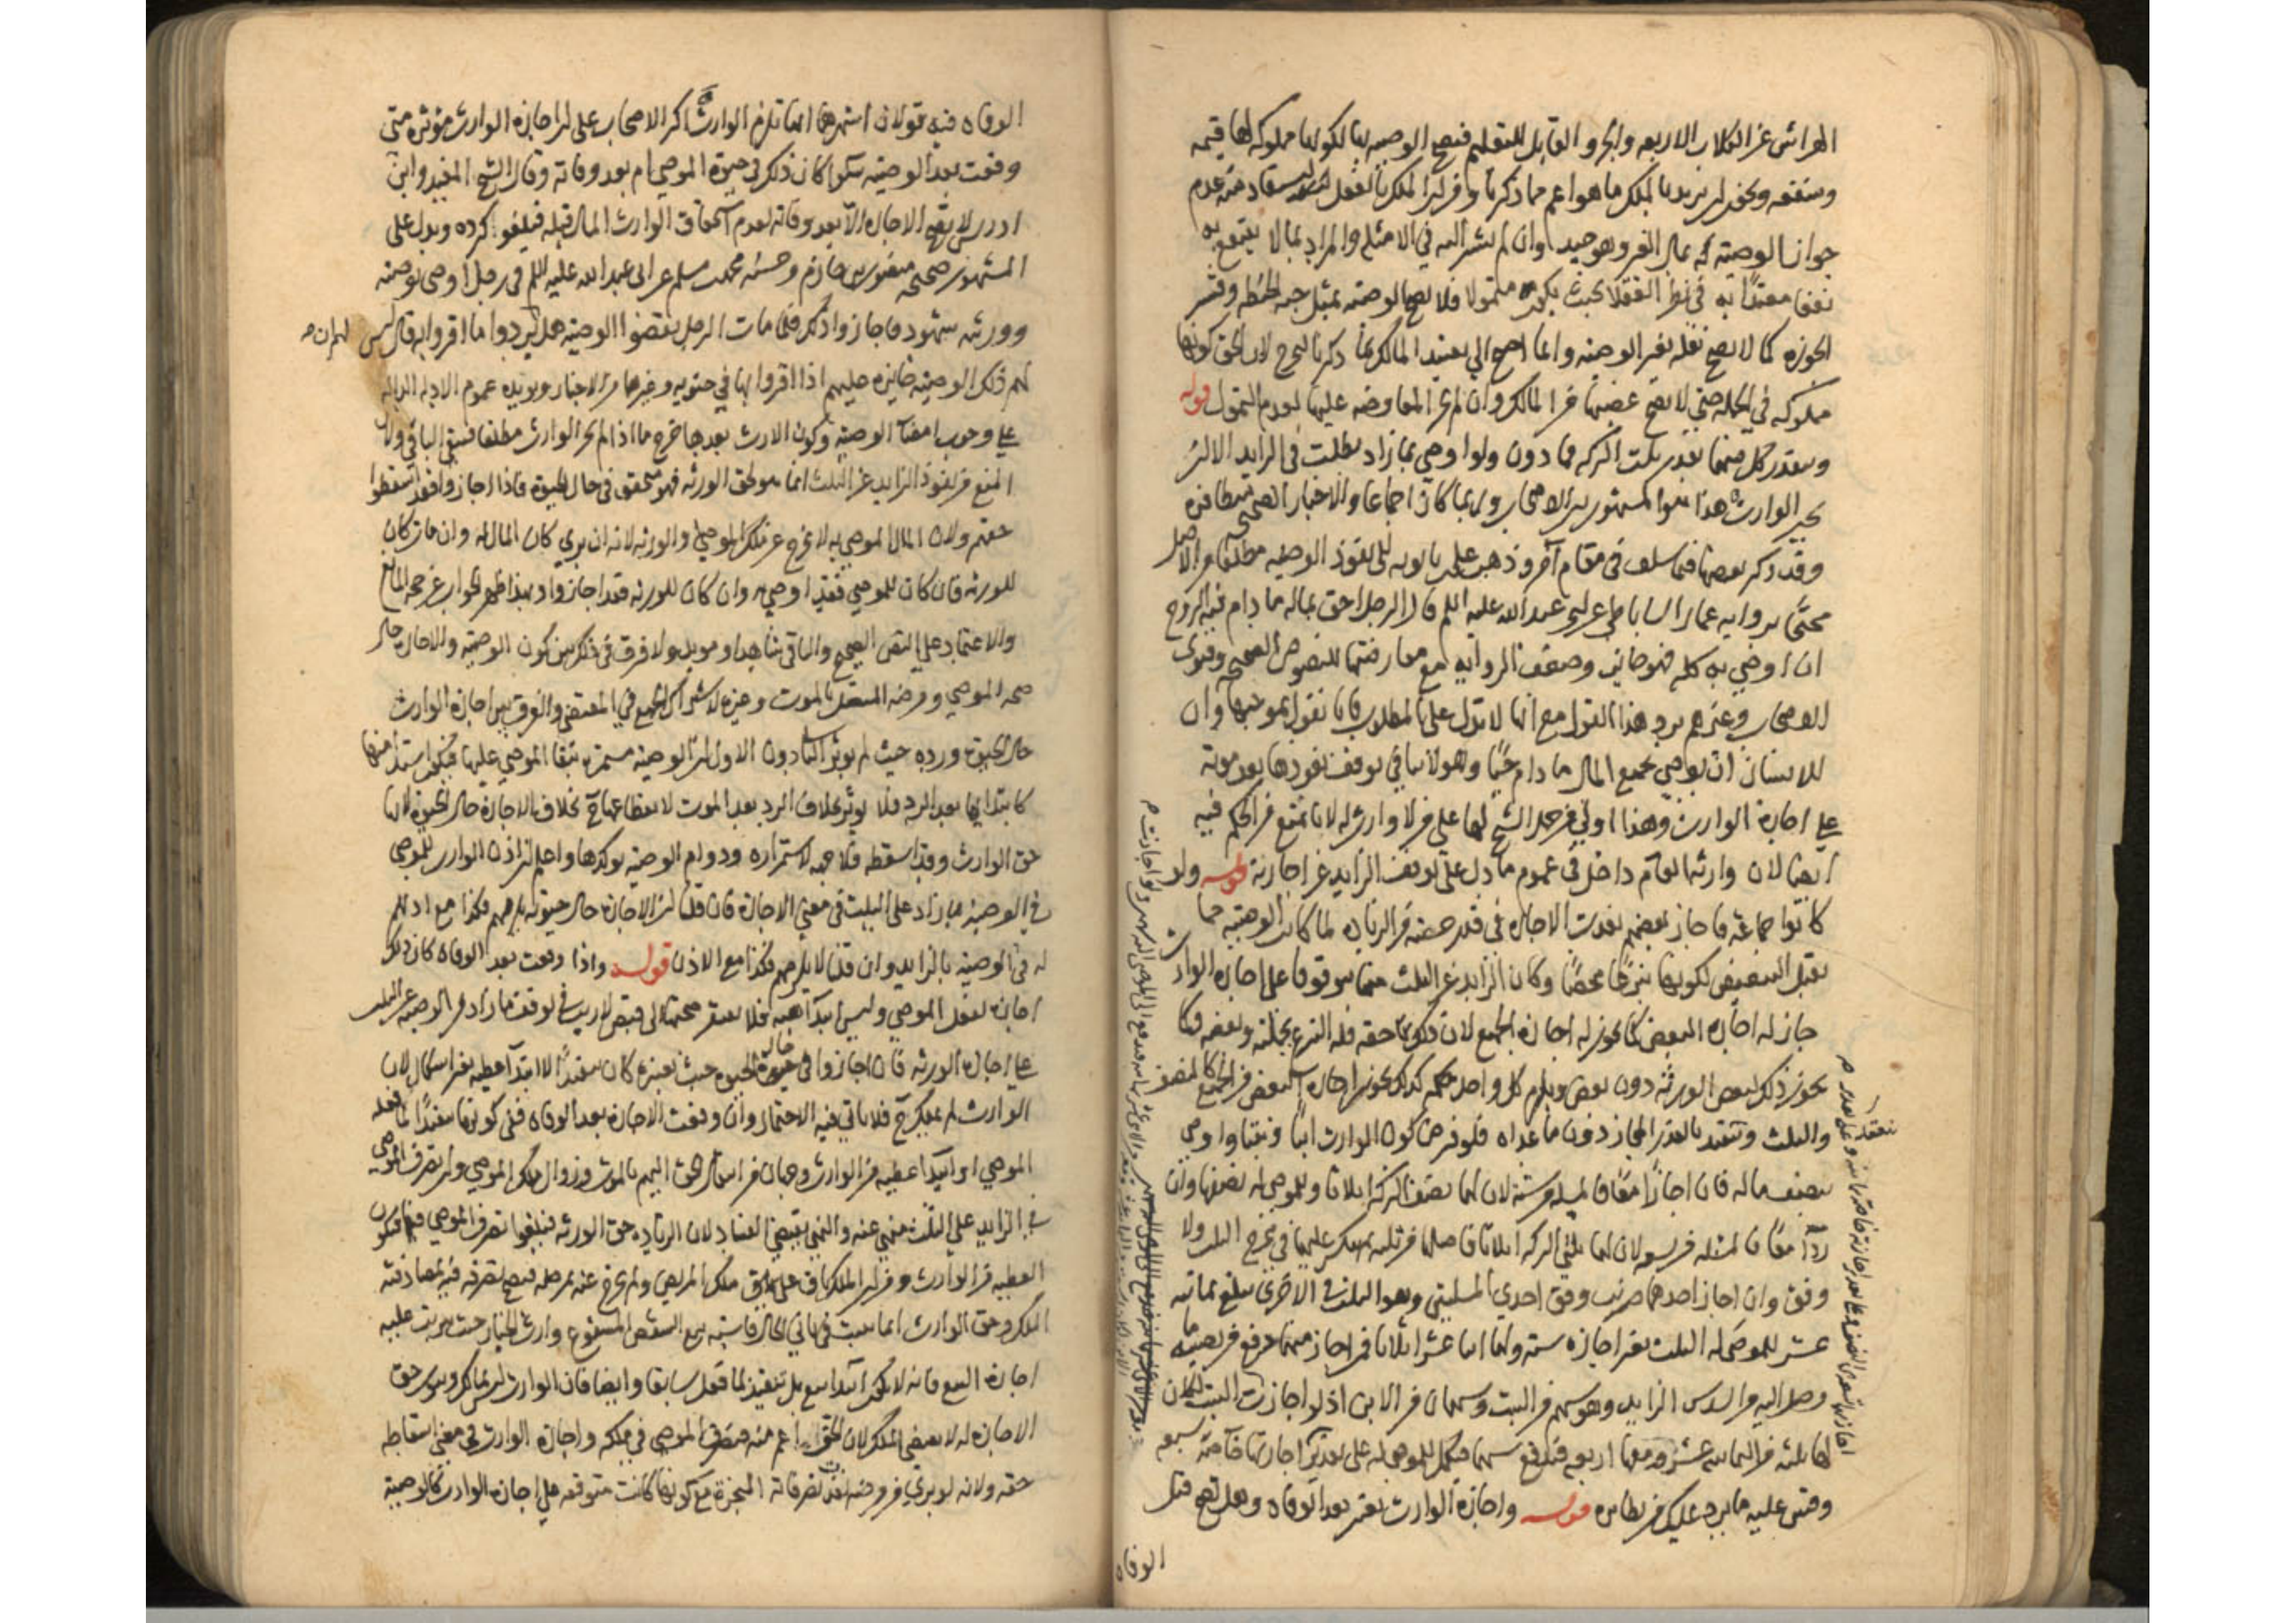 الهراش عن الكلاب الاربعه والجرو القابل للتعليم فتصح الوصيه بها لكونها مملوكه لها قيمه
ومنفعه ويجوز ان يريد بالملك ما هو اعم مما ذكرنا
جواز الوصيه به بمال الغير وهو جيد وان لم يشر اليه في الامثله والمراد بما لا ينتفع به
نفعا معتدا به في نظر العقلا بحيث يكون متمولا فلا تصح الوصيه بمثل حبه الحنطه وقشر
الجوزه كما لا يصح نقله بغير الوصيه وانما احتيج الى تقييد الملك بما ذكرنا ليخرج لان الحق كونها
مملوكه في الجمله حتى لا يصح غصبها من المالك وان لم تجز المعاوضه عليها لعدم التمول قوله
ويتقدر كل منهما بقدر ثلث التركه فما دون ولو اوصى بما زاد بطلت في الزايد الا ان
يجيز الوارث هذا هو المشهور بين الاصحاب وربما كان اجماعا والاخبار الصحيحه متظافره
وقد ذكر بعضها فيما سلف في مقام آخر وذهب علي بن بابويه الى نفوذ الوصيه مطلقا من الاصل
محتجا بروايه عمار الساباطي عن ابي عبد الله عليه السلم قال الرجل احق بماله ما دام فيه الروح
ان اوصى به كله فهو جايز وضعف الروايه مع معارضتها للنصوص الصحيحه وفتوى
الاصحاب وغيرهم يرد هذا القول مع انها لا تدل على المطلوب فانا نقول بموجبها وان
للانسان ان يوصي بجميع المال ما دام حيا وهو لا ينافي توقف نفوذها بعد موته
على اجازه الوارث وهذا اولى من حمل الشيخ لها على من لا وارث له لانا نمنع من الحكم فيه
ايضا لان وارثه العام داخل في عموم ما دل على توقف الزايد عن اجازته قوله ولو
كانوا جماعه فاجاز بعضهم نفذت الاجازه في قدر حصته من الزياده لما كانت الوصيه مما
يقبل التبعيض لكونها تبرعا محضا وكان الزايد عن الثلث منها موقوفا على اجازه الوارث
جاز له اجازه البعض كما يجوز له اجازه الجميع لان ذلك حقه فله التبرع بجملته وبعضه وكما
يجوز ذلك لبعض الورثه دون بعض ويلزم كل واحد حكمه كذلك يجوز اجازه البعض من الجميع كالنصف
والثلث وتتقيد بالقدر المجاز دون ما عداه فلو فرض كون الوارث ابنا وبنتا واوصى
بنصف ماله فان اجازا معا فالمسئله من سته لان لهما نصف التركه اثلاثا وللموصى له نصفها وان
ردا معا فالمسئله من تسعه لان لهما ثلثي التركه اثلاثا
وفق وان اجاز احدهما ضربت وفق احدى المسئلتين وهو الثلث في الاخرى تبلغ ثمانيه
عشر للموصى له الثلث بغير اجازه سته ولهما اثنا عشر اثلاثا فمن اجاز منهما دفع من نصيبه ما
وصل اليه من السدس الزايد وهو سهم من البنت وسهمان من الابن اذ لو اجازت البنت لكان
لها ثلثه من الثمانيه عشر ومعها اربعه فتدفع سهما فيكمل للموصى له على تقدير اجازتها خاصه سبعه
وقس عليه ما يرد عليك من نظايره قوله واجازه الوارث تعتبر بعد الوفاه وهل تصح قبل
الوفاه
الوفاه فيه قولان اشهرهما انها تلزم الوارث اكثر الاصحاب على ان اجازه الوارث مؤثره متى
وقعت بعد الوصيه سوا كان ذلك في حيوه الموصي ام بعد وفاته وقال الشيخ المفيد وابن
ادريس لا تصح الاجازه الا بعد وفاته لعدم استحقاق الوارث المال قبله فيلغو كرده ويدل على
المشهور صحيحه منصور بن حازم وحسنه محمد بن مسلم عن ابي عبد الله عليه السلم في رجل اوصى بوصيه
وورثته شهود فاجازوا ذلك فلما مات الرجل نقضوا الوصيه هل لهم ان يردوا ما اقروا به قال ليس
لهم ذلك الوصيه جايزه عليهم اذا اقروا بها في حيوته وغيرها من الاخبار ويؤيده عموم الادله الداله
على وجوب امضا الوصيه وكون الارث بعدها خرج ما اذا لم يجز الوارث مطلقا فيبقى الباقي ولان
المنع من نفوذ الزايد عن الثلث انما هو لحق الورثه فهو متحقق في حال الحيوه فاذا اجازوا فقد اسقطوا
حقهم ولان المال الموصى به لا يخرج عن ملك الموصي والورثه لانه ان بري كان المال له وان مات كان
للورثه فان كان للموصي فقد اوصى به وان كان للورثه فقد اجازوا وبهذا ظهر الجواب عن حجه المانع
والاعتماد على النص الصحيح والباقي شاهدا ومويدا ولا فرق في ذلك بين كون الوصيه والاجازه حال
صحه الموصي ومرضه المتصل بالموت وغيره لاشتراك الجميع في المقتضي والفرق بين اجازه الوارث
حال الحيوه ورده حيث لم يوثر الثاني دون الاول ان الوصيه مستمره ببقا الموصي عليها فيكون استدامتها
كابتدائها بعد الرد فلا يوثر بخلاف الرد بعد الموت لانقطاعها ح بخلاف الاجازه حال الحيوه لانها
حق الوارث وقد اسقطه فلا جهه لاستمراره ودوام الوصيه يوكدها واعلم ان اذن الوارث للموصي
في الوصيه بما زاد على الثلث في معنى الاجازه فان قلنا ان الاجازه حال حيوته تلزمهم فكذا مع اذنهم
له في الوصيه بالزايد وان قلنا لا يلزمهم فكذا مع الاذن قوله واذا وقعت بعد الوفاه كان ذلك
اجازه لفعل الموصي وليس ابتدا هبه فلا يفتقر صحتها الى قبض لا ريب في توقف ما زاد من الوصيه عن الثلث
على اجازه الورثه فان اجازوا في حال الحيوه حيث نعتبره كان تنفيذا لا ابتدا عطيه بغير اشكال لان
الوارث لم يملك ح فلا ياتي فيه الاحتمال وان وقعت الاجازه بعد الوفاه ففي كونها تنفيذا لما فعله
الموصي او ابتدا عطيه من الوارث وجهان من انتقال الحق اليهم بالموت وزوال ملك الموصي ولان تصرف الموصي
في الزايد على الثلث منهي عنه والنهي يقتضي الفساد لان الزياده حق الورثه فيلغوا تصرف الموصي فيها فتكون
العطيه من الوارث ومن ان الملك باق على ملك المريض ولم يخرج عنه بمرضه فيصح تصرفه فيه لمصادفته
الملك وحق الوارث انما يثبت في ثاني الحال فاشبه بيع الشقص المشفوع
اجازه البيع فانها لا تكون ابتدا بيع بل تنفيذ لما فعل سابقا وايضا فان الوارث
الاجازه له لا يقتضي الملك لان الحق اعم منه فتصرف الموصي في ملكه واجازه الوارث في معنى اسقاطه
حقه ولانه لو بري من مرضه نفذت تصرفاته المنجزه مع كونها كانت متوقفه على اجازه الوارث كالوصيه